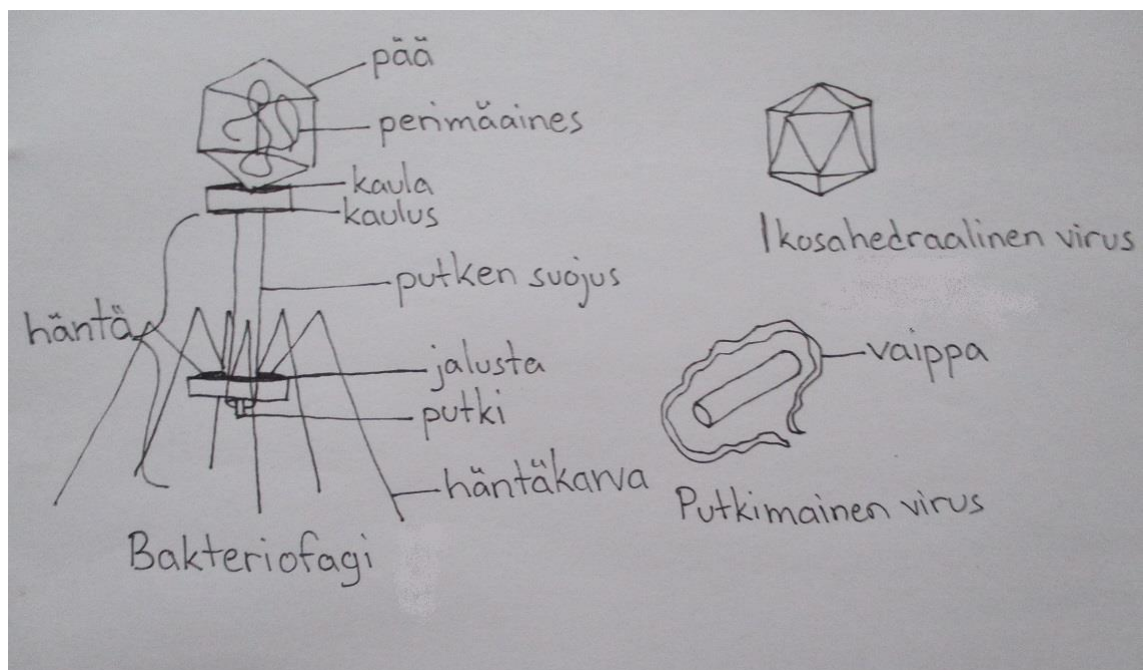 pää
perimäaines
kaula
kaulus
putken suojus
häntä
jalusta
putki
häntäkarva
Bakteriofagi
Ikosahedraalinen virus
vaippa
Putkimainen virus